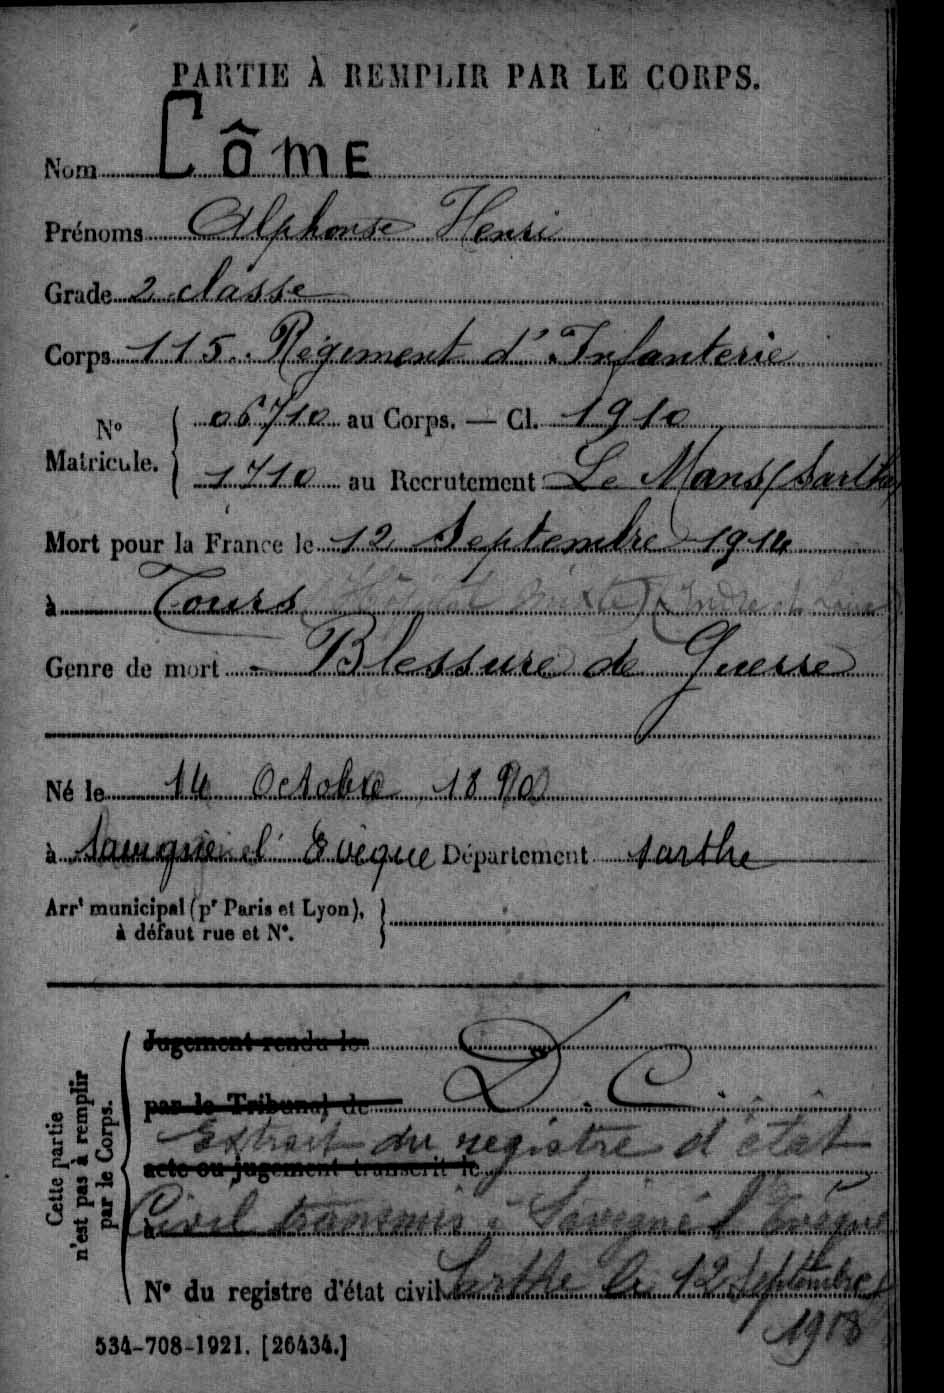 PARTIE À REMPLIR PAR LE CORPS.
Nom CÔME
Prénoms Alphonse Henri
Grade 2 classe
Corps 115. Régiment d'Infanterie
N° Matricule. { 06710 au Corps. — Cl. 1910
1710 au Recrutement Le Mans (Sarthe)
Mort pour la France le 12 Septembre 1914
à Tours (Hôpital mixte) (Indre et Loire)
Genre de mort - Blessure de Guerre
Né le 14 Octobre 1890
à Savigné l'Evêque Département Sarthe
Arrt municipal (pr Paris et Lyon), à défaut rue et N°. }
Cette partie n'est pas à remplir par le Corps.
Jugement rendu le D.C.
par le Tribunal de
Extrait du registre d'état
acte ou jugement transcrit le
à Civil transmis à Savigné l'Evêque
N° du registre d'état civil Sarthe le 12 Septembre
1918
534-708-1921. [26434.]